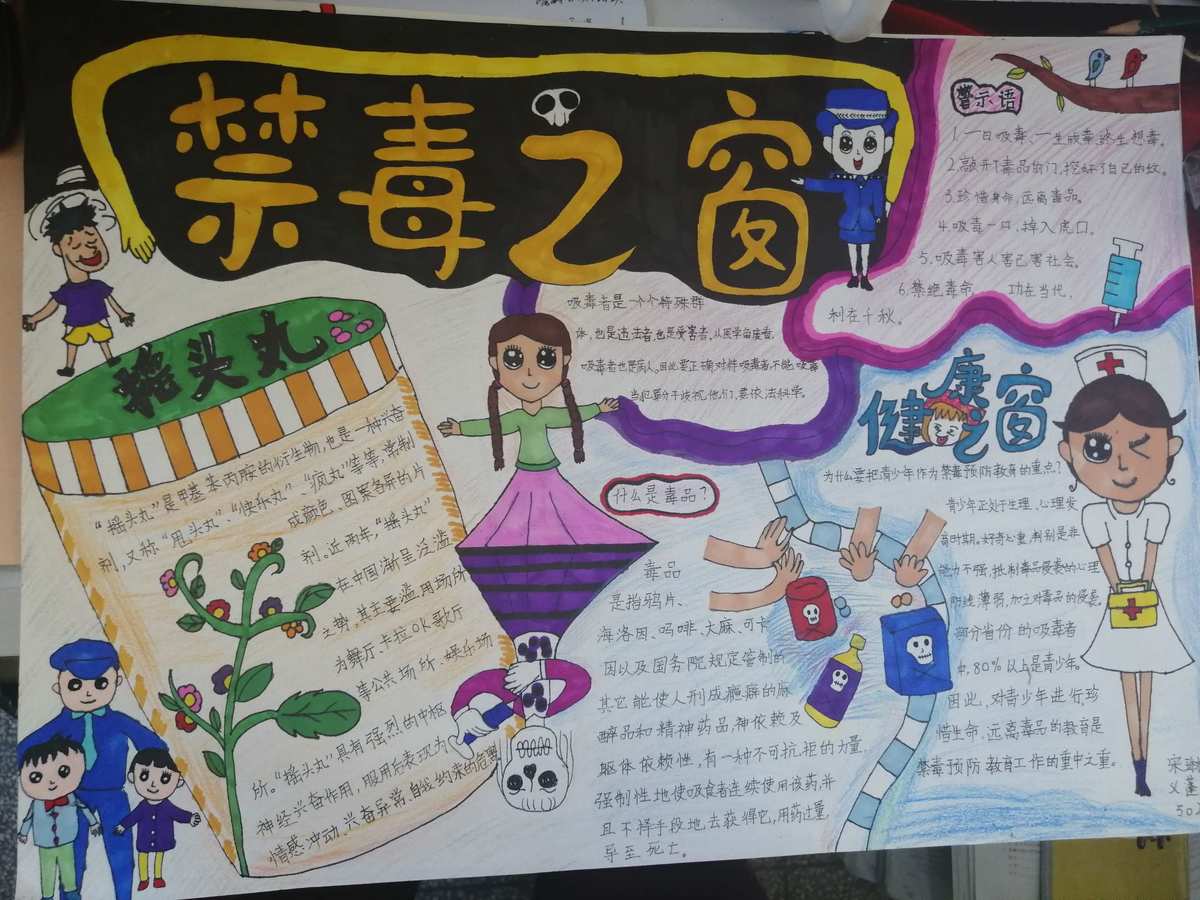 禁毒之窗
警示语
1.一日吸毒、一生戒毒、终生想毒。
2.敲开了毒品的门,挖好了自己的坟。
3.珍惜身命,远离毒品。
4.吸毒一口,掉入虎口。
5.吸毒害人害己害社会。
6.禁绝毒命, 功在当代,
利在千秋。
摇头丸
“摇头丸”是甲基苯丙胺的衍生物,也是一种兴奋
剂,又称“甩头丸”、“快乐丸”、“疯丸”等等,常制
成颜色、图案各异的片
剂。近两年,“摇头丸”
在中国渐呈泛滥
之势,其主要滥用场所
为舞厅、卡拉OK歌厅
等公共场所、娱乐场
所。“摇头丸”具有强烈的中枢
神经兴奋作用,服用后表现为
情感冲动、兴奋异常、自我约束的危墨
吸毒者是一个个特殊群
体,也是违法者,也是受害者,从医学角度看,
吸毒者也是病人。因此要正确对待吸毒者,不能吸毒
他们,要依法科学。
什么是毒品?
毒品
是指鸦片、
海洛因、吗啡、大麻、可卡
因以及国务院规定管制的
其它能使人形成瘾癖的麻
醉品和精神药品,神依赖及
躯体依赖性,有一种不可抗拒的力量,
强制性地使吸食者连续使用该药,并
且不择手段地去获得它,用药过量,
导至死亡。
健康之窗
为什么要把青少年作为禁毒预防教育的重点?
青少年正处于生理、心理发
育时期,好奇心重,判别是非
能力不强,抵制毒品侵袭的心理
防线薄弱,加之对毒品的侵袭。
部分省份的吸毒者
中,80%以上是青少年。
因此,对青少年进行珍
惜生命、远离毒品的教育是
禁毒预防教育工作的重中之重。